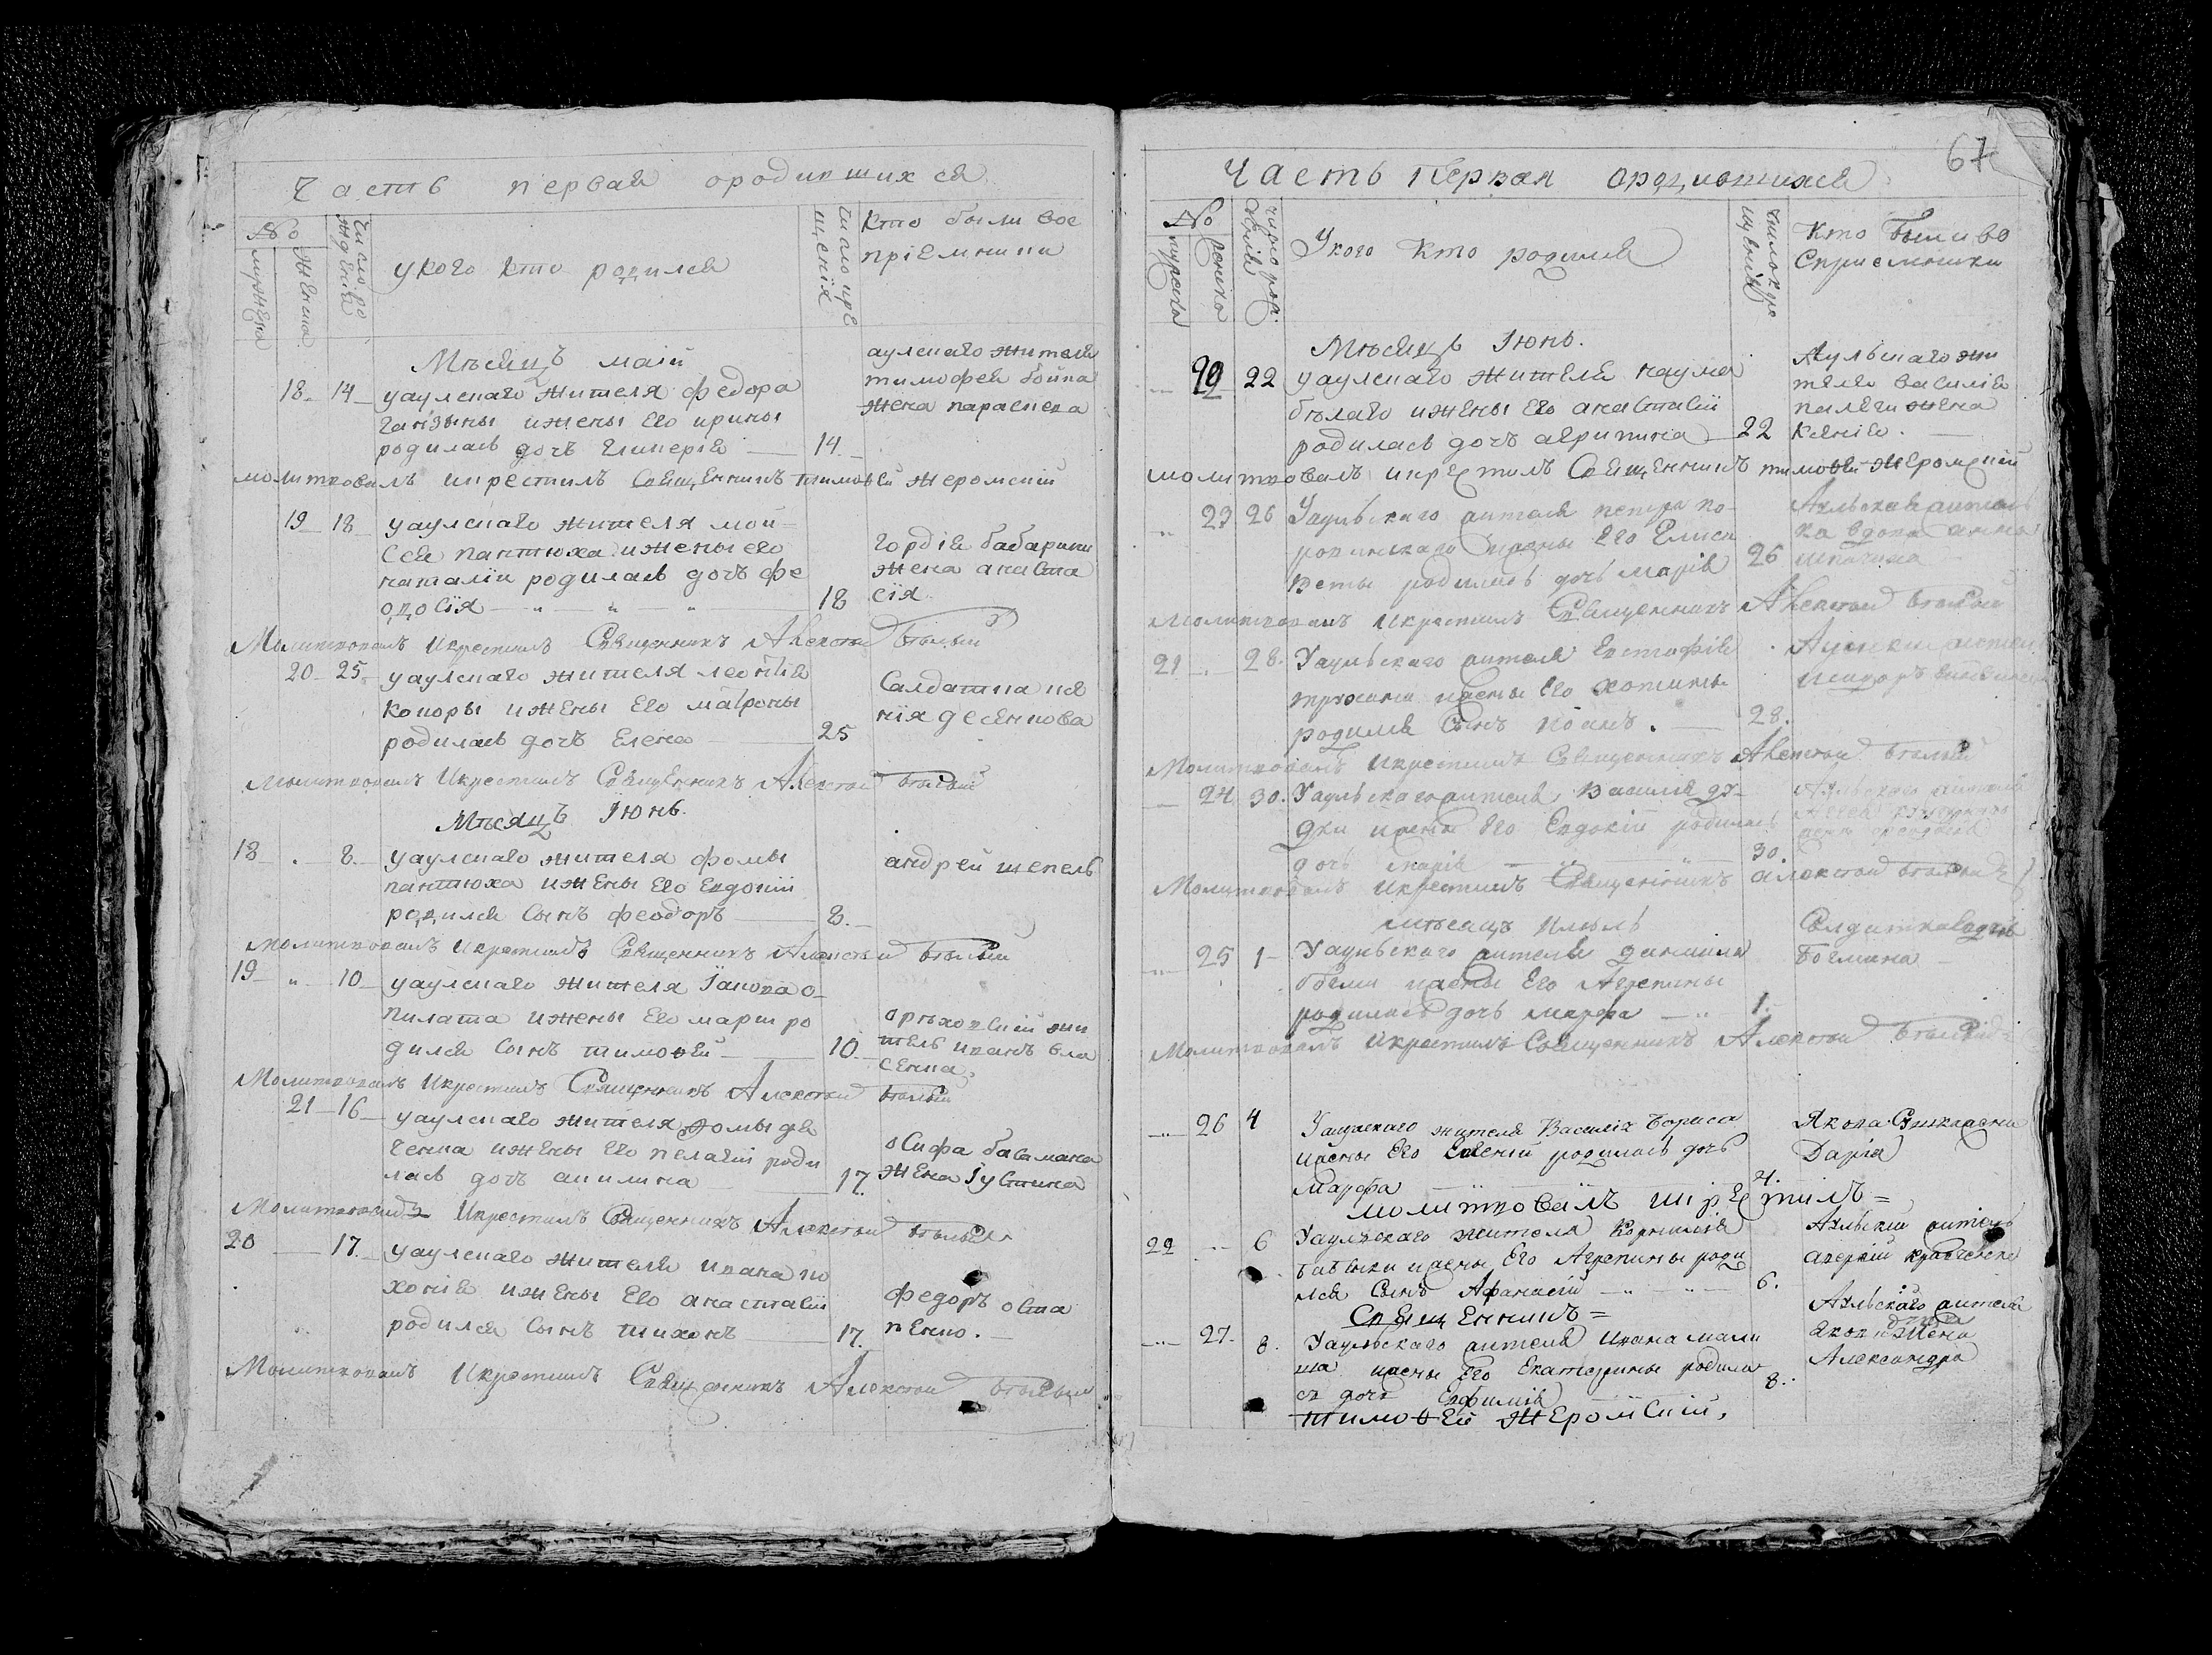 Часть первая ородившихся
№
мужеска
женска
Число рождения
у кого кто родился
Число крещенія
Кто были восприемники
Мѣсяцъ маій
18 14 уаулскаго жителя федора
ижены Его ирины
родилась дочъ Гликерія 14
аулскаго жителя
тимофея бойка
жена параскева
молитвовалъ икрестилъ Священникъ тимоѳей Жеромскій
19 18 уаулскаго жителя мой-
сея пантюха ижены его
наталіи родилась дочъ фе
одосія 18
гордія бабарики
жена анаста
сія
Молитвовалъ Икрестилъ Священникъ Алексѣй Бѣлый
20 25 уаулскаго жителя леонтія
Копоры ижены Его матроны
родилась дочъ Елена 25
Салдатка ксе
нія десенкова
Молитвовалъ Икрестилъ Священникъ Алексѣй Бѣлый
Мѣсяцъ Іюнь.
18 8 уаулскаго жителя фомы
пантюха ижены Его Евдокіи
родился Сынъ феодоръ 8.
андрей шепель
Молитвовалъ Икрестилъ Священникъ Алексѣй Бѣлый
19 10 уаулскаго жителя Іакова о-
пилата ижены Его марѳи ро
дился Сынъ тимоѳей 10
орѣховскій жи
тель иванъ вла
сенка
Молитвовалъ Икрестилъ Священникъ Алексѣй Бѣлый
21 16 уаулскаго жителя ѳомы дя
ченка ижены Его пелагіи роди
лась дочъ акилина 17.
осифа басмана
жена Іустина
Молитвовалъ Икрестилъ Священникъ Алексѣй Бѣлый
20 17 уаулскаго жителя ивана по
хонія ижены Его анастасіи
родился Сынъ тихонъ 17.
федоръ оста
пенко.
Молитвовалъ Икрестилъ Священникъ Алексѣй Бѣлый
67
Часть Первая ородившихся
№
мужеска
женска
число рожденія
Укого кто родился
Число крещенія
Кто были во
сприемники
Мѣсяцъ Іюнь.
22 уаулскаго жителя наума
бѣлаго ижены Его анастасіи
родилась дочъ агрипина 22
Аульскаго жи
теля василія
палеги жена
Ксенія.
молитвовалъ икрестилъ Священникъ тимоѳей Жеромскій
23 26 Уаульскаго жителя петра по-
ижены Его Елиса
веты родилась дочь марія 26
Аульская житель
ка вдова анна
Молитвовалъ Икрестилъ Священникъ Алексѣй Бѣлый
21 28. Уаульскаго жителя Евстафія
ижены Его
родился Сынъ Иоанъ. 28.
Молитвовалъ Икрестилъ Священникъ Алексѣй Бѣлый
24 30. Уаульскаго жителя Василія ду-
дки ижены Его Евдокіи родилась
дочь марія 30.
Аульскаго жителя
Молитвовалъ Икрестилъ Священникъ алексѣй Бѣлый
мѣсяцъ Июль
25 1 Уаульскаго жителя даниила
ижены Его Агрепины
родилась дочь марфа 1.
Солдатка
Молитвовалъ Икрестилъ Священникъ Алексѣй Бѣлый
26 4 Уаулскаго жителя Василія Бориса
ижены Его Ксеніи родилась дочь
Марфа 4.
Якова
Дарія
молитвовалъ икрестилъ =
22 6 Уаулскаго жителя Корнилія
ижены Его Агрепины роди
лся Сынъ Афанасій 6.
Аульскій житель
аверкій кравченко
Священникъ =
27. 8. Уаульскаго жителя Ивана мали
ша ижены Его Екатерины родила
сь дочь Евфимія 8.
Аульскаго жителя
жена
Александра
тимоѳей Жеромскій,